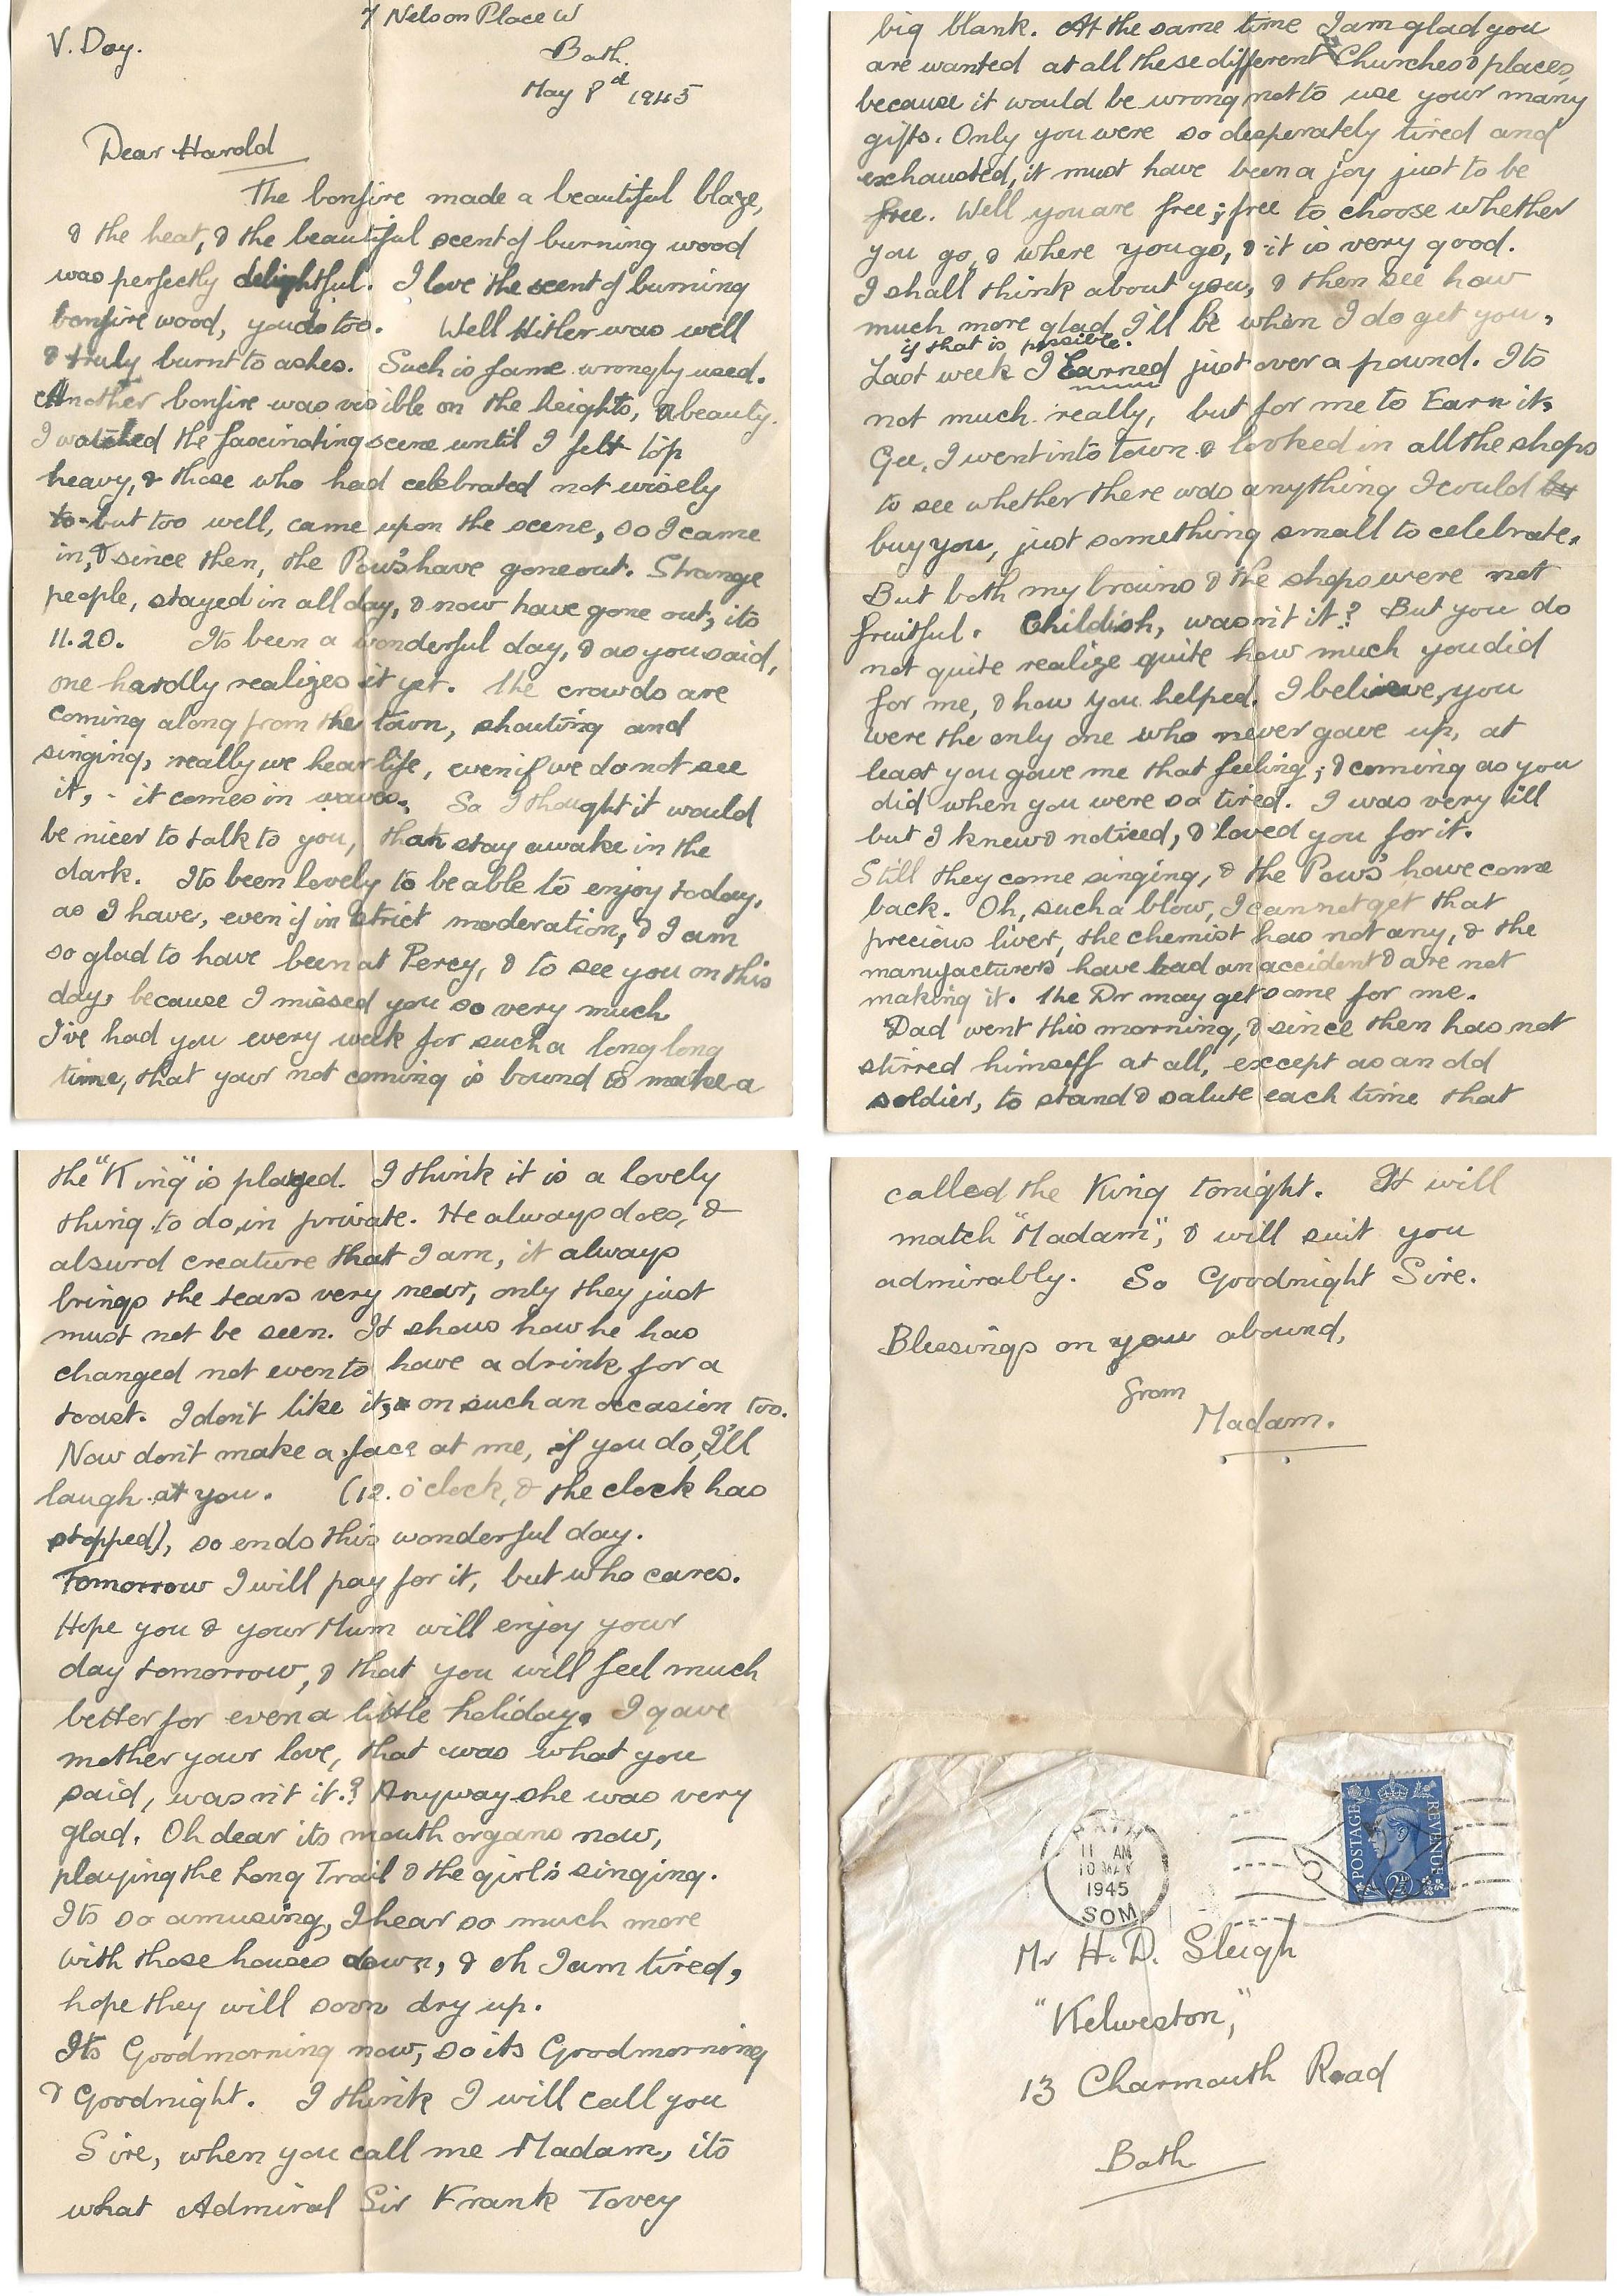 7 Nelson Place W
V. Day.
Bath.
May 8th 1945
Dear Harold
The bonfire made a beautiful blaze,
& the heat, & the beautiful scent of burning wood
was perfectly delightful. I love the scent of burning
bonfire wood, you do too. Well Hitler was well
& truly burnt to ashes. Such is fame wrongly used.
Another bonfire was visible on the heights, a beauty.
I watched the fascinating scene until I felt top
heavy, & those who had celebrated not wisely
but too well, came upon the scene, so I came
in, & since then, the Pow's have gone out. Strange
people, stayed in all day, & now have gone out, its
11.20. Its been a wonderful day, & as you said,
one hardly realizes it yet. The crowds are
coming along from the town, shouting and
singing, really we hear life, even if we do not see
it, - it comes in waves. So I thought it would
be nicer to talk to you, than stay awake in the
dark. Its been lovely to be able to enjoy today,
as I have, even if in strict moderation, & I am
so glad to have been at Percy, & to see you on this
day, because I missed you so very much
I've had you every week for such a long long
time, that your not coming is bound to make a
big blank. At the same time I am glad you
are wanted at all these different Churches & places,
because it would be wrong not to use your many
gifts. Only you were so desperately tired and
exhausted, it must have been a joy just to be
free. Well you are free; free to choose whether
you go, & where you go, & it is very good.
I shall think about you, & then see how
much more glad I'll be when I do get you,
if that is possible.
Last week I Earned just over a pound. Its
not much really, but for me to Earn it,
Gee, I went into town & looked in all the shops
to see whether there was anything I could by
buy you, just something small to celebrate.
But both my brains & the shops were not
fruitful. Childish, wasn't it? But you do
not quite realize quite how much you did
for me, & how you helped. I believe, you
were the only one who never gave up, at
least you gave me that feeling; & coming as you
did when you were so tired. I was very ill
but I knew & noticed, & loved you for it.
Still they come singing, & the Pow's have come
back. Oh, such a blow, I can not get that
precious liver, the chemist has not any, & the
manufacturers have had an accident & are not
making it. The Dr may get some for me.
Dad went this morning, & since then has not
stirred himself at all, except as an old
soldier, to stand & salute each time that
the "King" is played. I think it is a lovely
thing to do, in private. He always does, &
absurd creature that I am, it always
brings the tears very near, only they just
must not be seen. It shows how he has
changed not even to have a drink for a
toast. I don't like it, on such an occasion too.
Now don't make a face at me, if you do, I'll
laugh at you. (12. o'clock, & the clock has
stopped), so ends this wonderful day.
Tomorrow I will pay for it, but who cares.
Hope you & your Mum will enjoy your
day tomorrow, & that you will feel much
better for even a little holiday. I gave
mother your love, that was what you
said, wasn't it.? Anyway she was very
glad. Oh dear its mouth organs now,
playing the Long Trail & the girl's singing.
Its so amusing, I hear so much more
with those houses down, & oh I am tired,
hope they will soon dry up.
Its Goodmorning now, so its Goodmorning
& Goodnight. I think I will call you
Sire, when you call me Madam, its
what Admiral Sir Frank Tovey
called the King tonight. It will
match "Madam", & will suit you
admirably. So Goodnight Sire.
Blessings on you abound,
from
Madam.
POSTAGE REVENUE
2½D
BATH
11 AM
10 MAY
1945
SOM
Mr H. D. Sleigh
"Kelweston,"
13 Charmouth Road
Bath